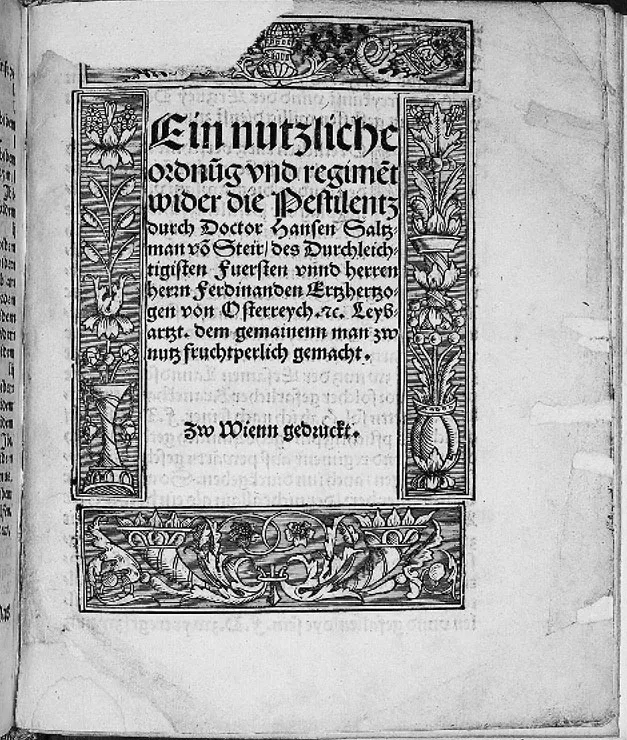 Ein nutzliche
ordnūg vnd regimēt
wider die Pestilentz
durch Doctor Hansen Saltz-
man vō Steir/ des Durchleich-
tigisten Fuersten vnnd herren
herrn Ferdinanden Ertzhertzo-
gen von Osterreych .⁊c. Leyb-
artzt. dem gemainenn man zw
nutz fruchtperlich gemacht.
Zw Wienn gedruckt.